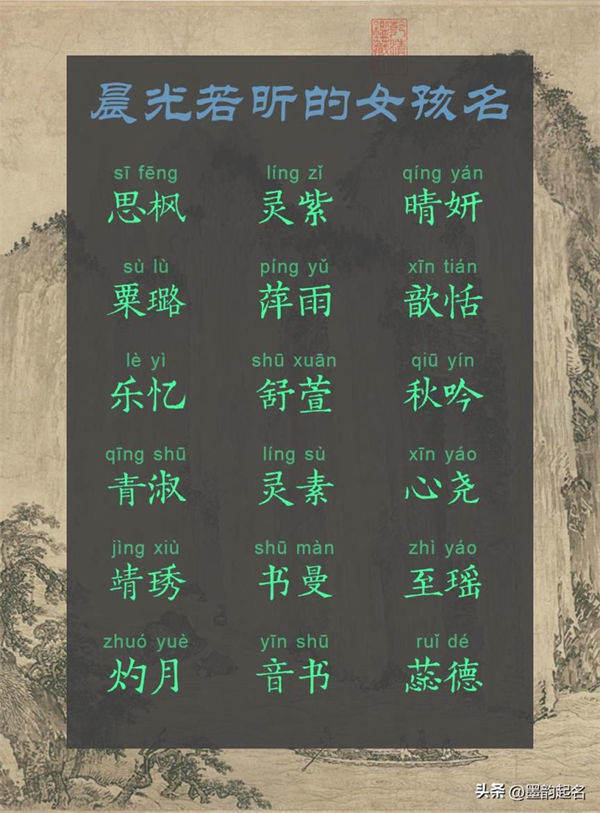 晨光若昕的女孩名
sī fēng líng zǐ qíng yán
思枫 灵紫 晴妍
sù lù píng yǔ xīn tián
粟璐 萍雨 歆恬
lè yì shū xuān qiū yín
乐忆 舒萱 秋吟
qīng shū líng sù xīn yáo
青淑 灵素 心尧
jìng xiù shū màn zhì yáo
靖琇 书曼 至瑶
zhuó yuè yīn shū ruǐ dé
灼月 音书 蕊德
头条 @墨韵起名